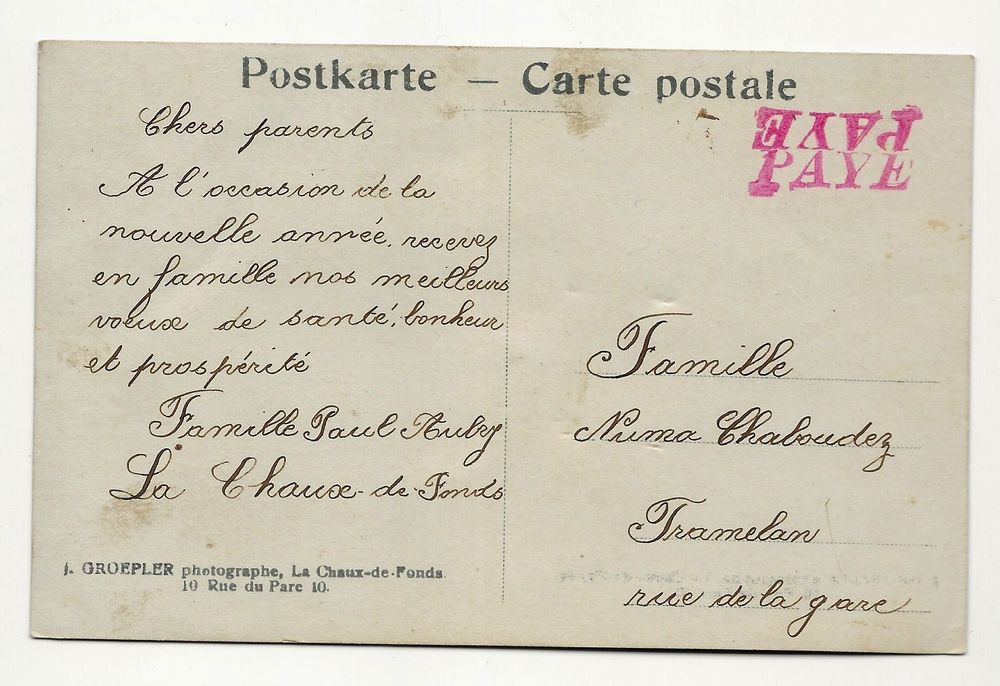 Postkarte — Carte postale
PAYE
PAYE
Chers parents
A l'occasion de la
nouvelle année, recevez
en famille nos meilleurs
voeux de santé, bonheur
et prospérité
Famille Paul Aubry
La Chaux-de-Fonds
J. GROEPLER photographe, La Chaux-de-Fonds
10 Rue du Parc 10.
Famille
Numa Chaboudez
Tramelan
rue de la gare